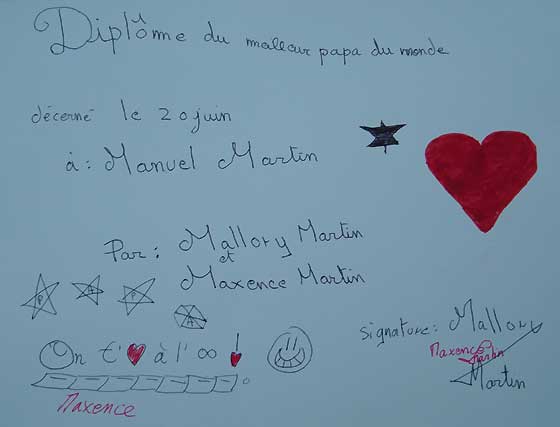 Diplôme du malleur papa du monde
décerné le 20 juin
à : Manuel Martin
Par : Mallory Martin
et
Maxence Martin
P A P A
On t'❤ à l'∞ !
Maxence
signature : Mallory
Martin
Maxence
Martin